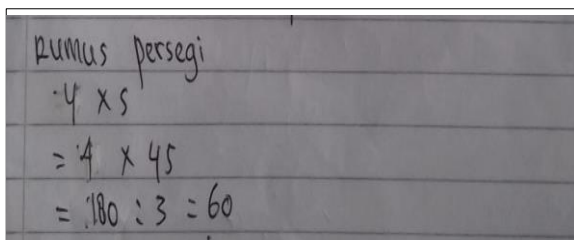 Rumus persegi
4 x s
= 4 x 45
= 180 : 3 = 60